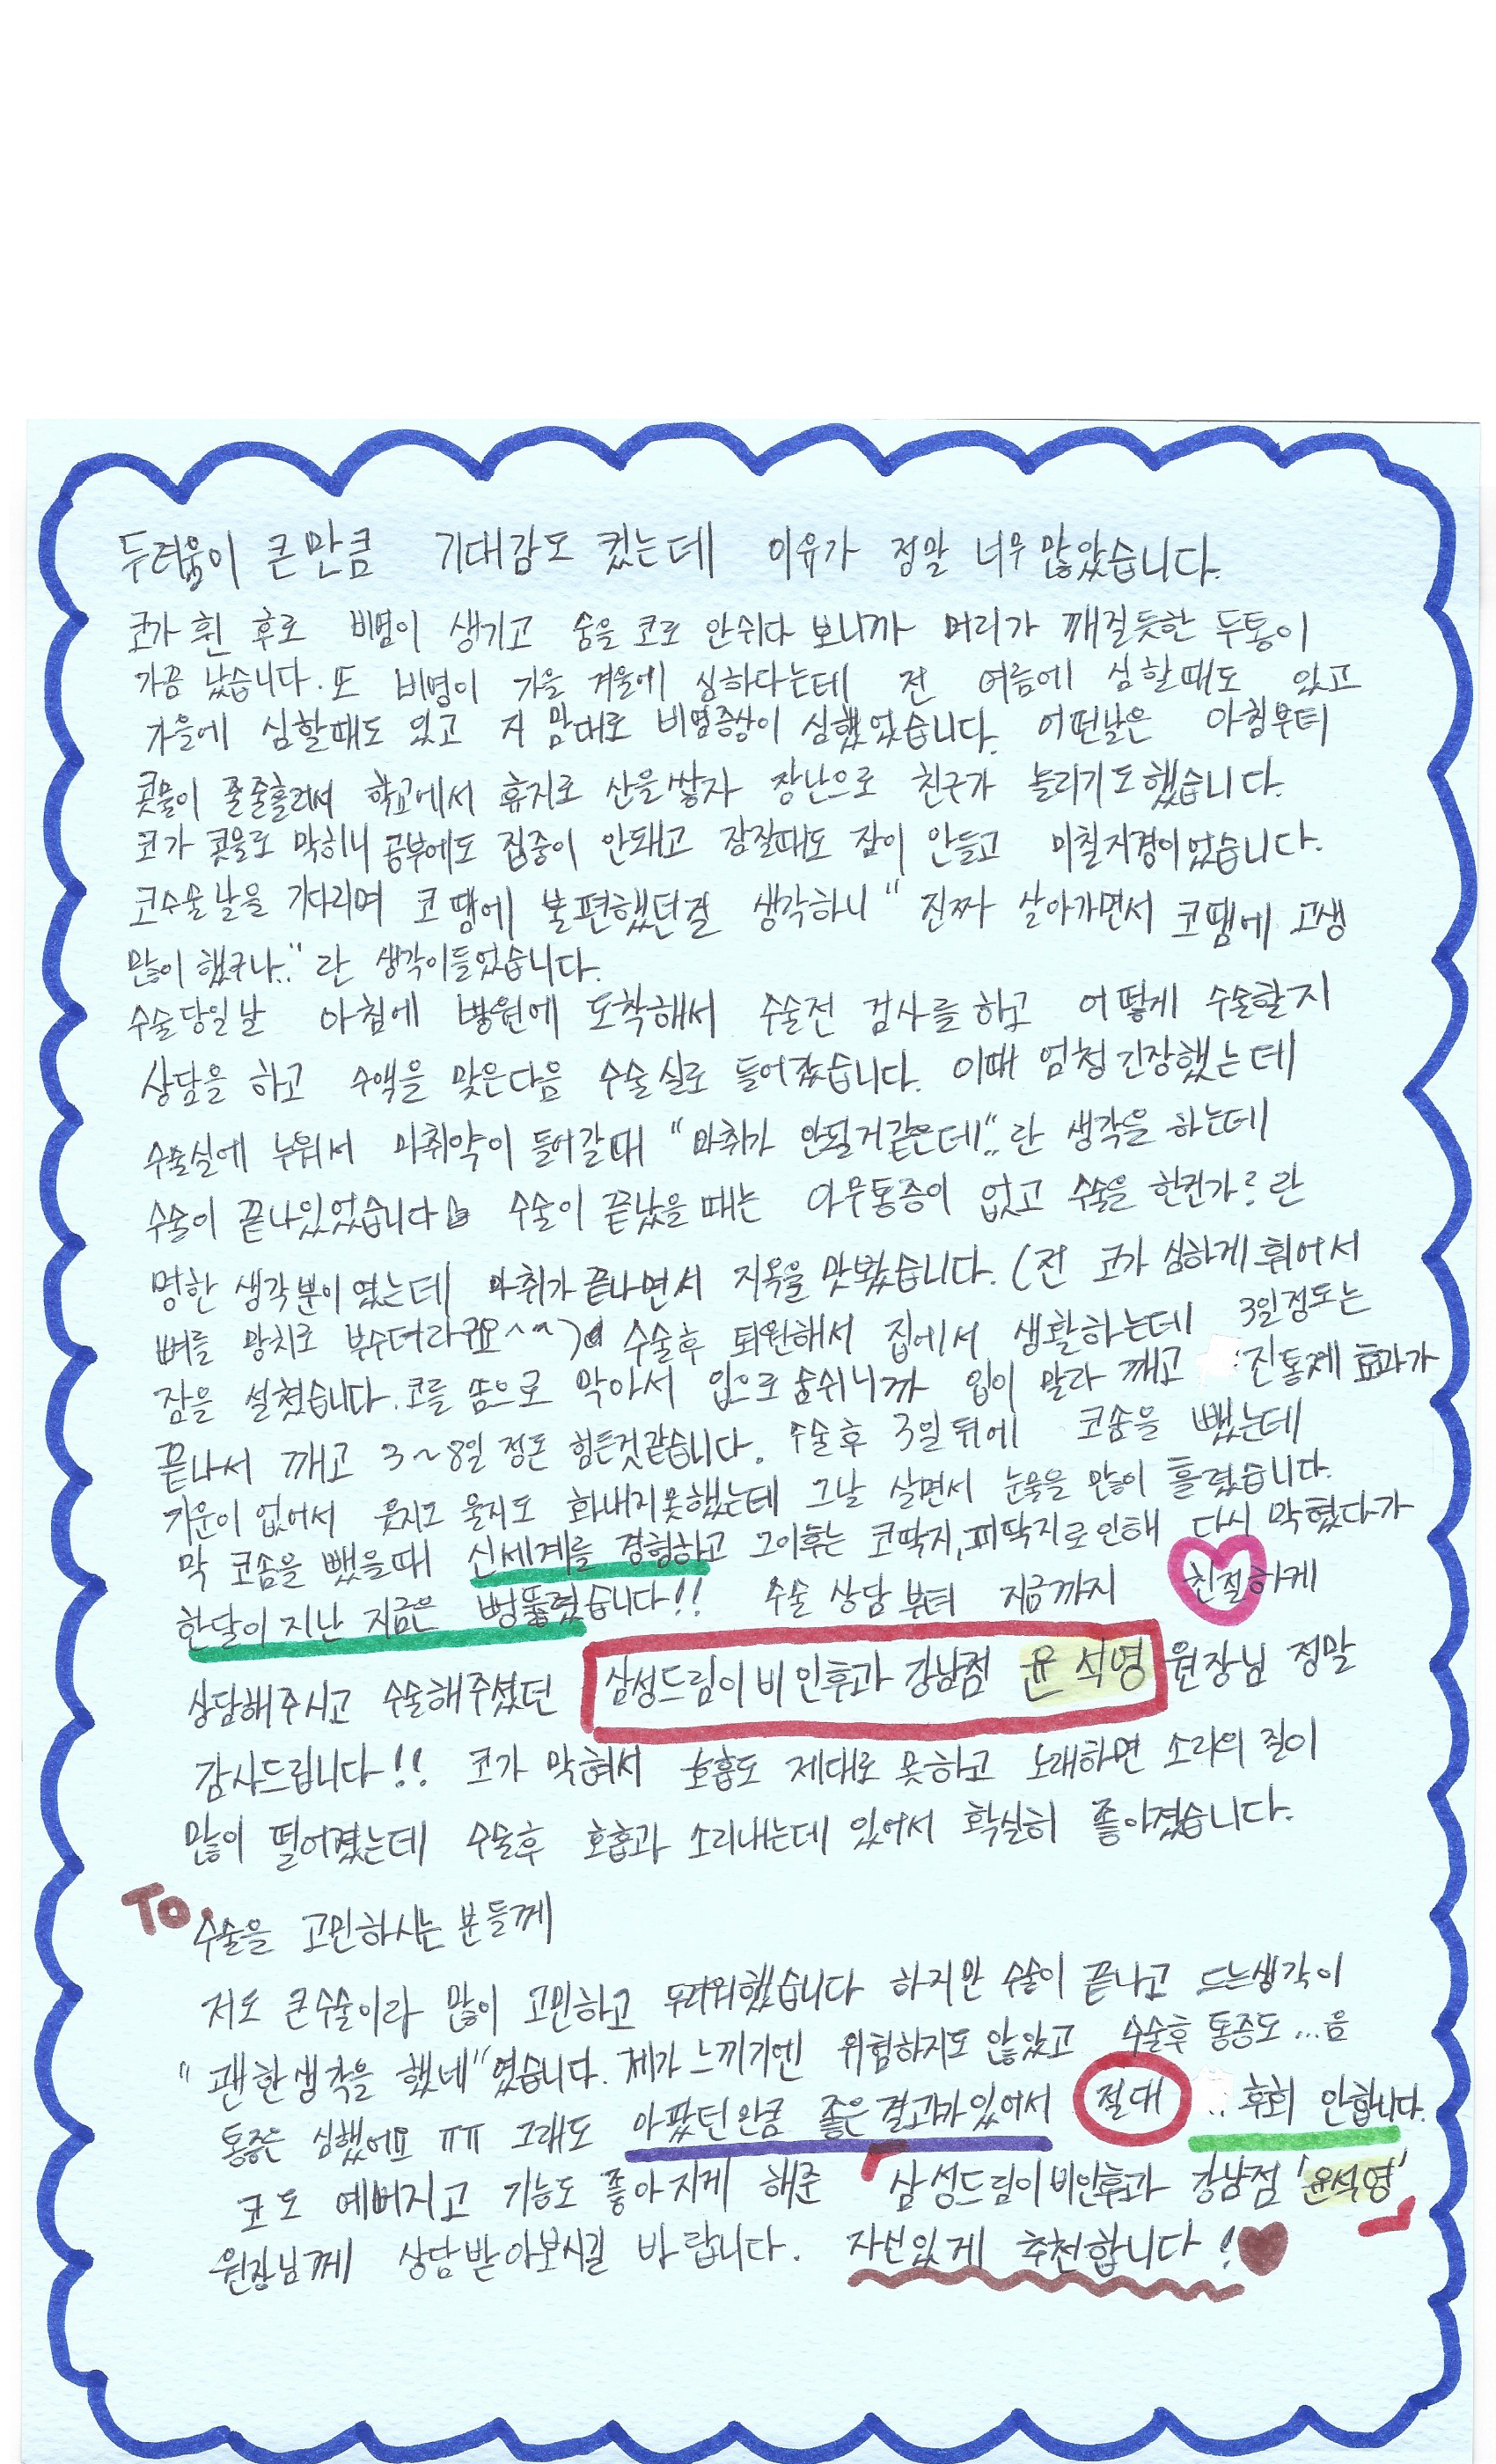 두려움이 큰만큼 기대감도 컸는데 이유가 정말 너무 많았습니다.
코가 휜 후로 비염이 생기고 숨을 코로 안쉬다 보니까 머리가 깨질듯한 두통이
가끔 났습니다. 또 비염이 가을 겨울에 심하다는데 전 여름에 심할때도 있고
가을에 심할때도 있고 지 맘대로 비염증상이 심했었습니다. 어떤날은 아침부터
콧물이 줄줄흘러서 학교에서 휴지로 산을쌓자 장난으로 친구가 놀리기도했습니다.
코가 콧물로 막히니 공부에도 집중이 안돼고 잠잘때도 잠이 안들고 미칠지경이었습니다.
코수술날을 기다리며 코 땜에 불편했던걸 생각하니 "진짜 살아가면서 코땜에 고생
많이 했구나.." 란 생각이들었습니다.
수술당일날 아침에 병원에 도착해서 수술전 검사를 하고 어떻게 수술할지
상담을 하고 수액을 맞은다음 수술실로 들어갔습니다. 이때 엄청긴장했는데
수술실에 누워서 마취약이 들어갈때 "마취가 안될거같은데".. 란 생각을 하는데
수술이 끝나있었습니다 수술이 끝났을 때는 아무통증이 없고 수술을 한건가? 란
멍한 생각뿐이였는데 마취가 끝나면서 지옥을 맛봤습니다. (전 코가 심하게 휘어서
뼈를 망치로 부수더라구요^^) 수술후 퇴원해서 집에서 생활하는데 3일정도는
잠을 설쳤습니다. 코를 솜으로 막아서 입으로 숨쉬니까 입이 말라 깨고 진통제 효과가
끝나서 깨고 3~8일 정돈 힘든것같습니다. 수술후 3일뒤에 코솜을 뺐는데
기운이 없어서 웃지도 울지도 화내지못했는데 그날 살면서 눈물을 많이 흘렸습니다.
막 코솜을 뺐을때 신세계를 경험하고 그이후는 코딱지, 피딱지로 인해 다시 막혔다가
한달이 지난 지금은 뻥뚫렸습니다!! 수술 상담부터 지금까지 친절하게
상담해주시고 수술해주셨던 삼성드림이비인후과 강남점 윤석영 원장님 정말
감사드립니다!! 코가 막혀서 호흡도 제대로 못하고 노래하면 소리의 질이
많이 떨어졌는데 수술후 호흡과 소리내는데 있어서 확실히 좋아졌습니다.
To. 수술을 고민하시는 분들께
저도 큰수술이라 많이 고민하고 두려워했습니다 하지만 수술이 끝나고 드는생각이
"괜한생각을 했네"였습니다. 제가 느끼기엔 위험하지도 않았고 수술후 통증도...음
통증은 심했어요 ㅠㅠ 그래도 아팠던만큼 좋은결과가있어서 절대 후회 안합니다.
코도 예뻐지고 기능도 좋아지게 해준 「삼성드림이비인후과 강남점 '윤석영'」
원장님께 상담받아보시길 바랍니다. 자신있게 추천합니다!